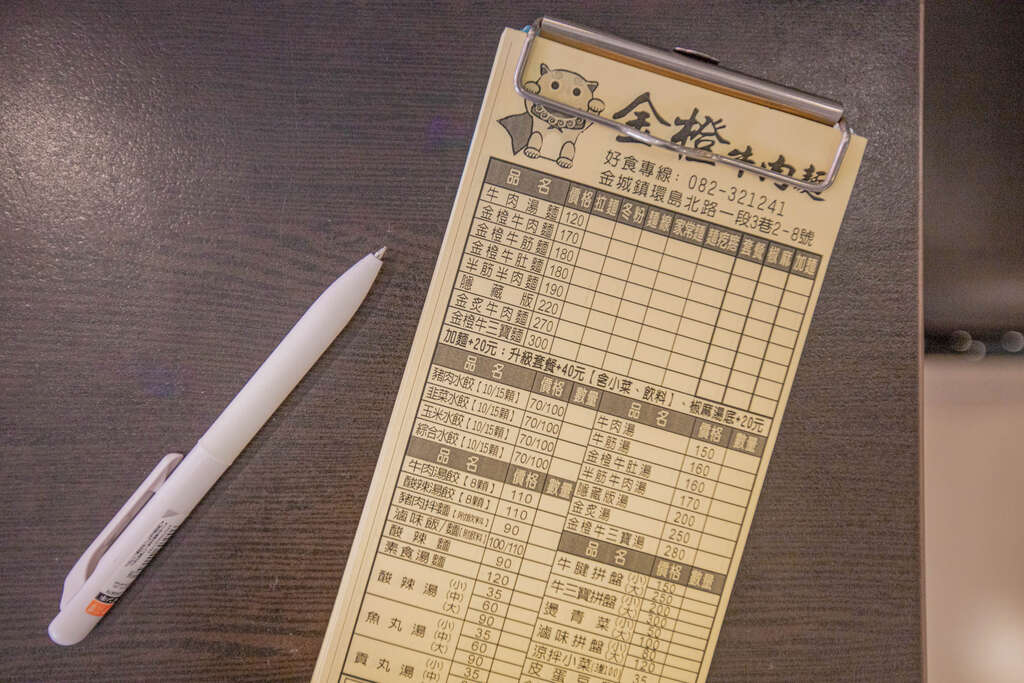 金橙牛肉麵
好食專線: 082-321241
金城鎮環島北路一段3巷2-8號
品名 價格 拉麵 冬粉 麵線 家常麵 麵疙瘩 套餐 椒麻 加麵
牛肉湯麵 120
金橙牛肉麵 170
金橙牛筋麵 180
金橙牛肚麵 180
半筋半肉麵 190
隱藏版 220
金炙牛肉麵 270
金橙牛三寶麵 300
加麵+20元；升級套餐+40元【含小菜、飲料】、椒麻湯底+20元
品名 價格 數量
豬肉水餃【10/15顆】 70/100
韭菜水餃【10/15顆】 70/100
玉米水餃【10/15顆】 70/100
綜合水餃【10/15顆】 70/100
品名 價格 數量
牛肉湯餃【8顆】 110
酸辣湯餃【8顆】 110
豬肉拌麵 90
滷味飯/麵 100/110
酸辣麵 90
素食湯麵
酸辣湯 (小) (中) (大)
魚丸湯 (小) (中) (大)
貢丸湯 (小) (中)
品名 價格 數量
牛肉湯 150
牛筋湯 160
金橙牛肚湯 160
半筋半肉湯 170
隱藏版湯 200
金炙湯 250
金橙牛三寶湯 280
品名 價格 數量
牛腱拼盤 (小) (大)
牛三寶拼盤 (小) (大)
燙青菜 (小) (大)
滷味拼盤
涼拌小菜
皮蛋豆